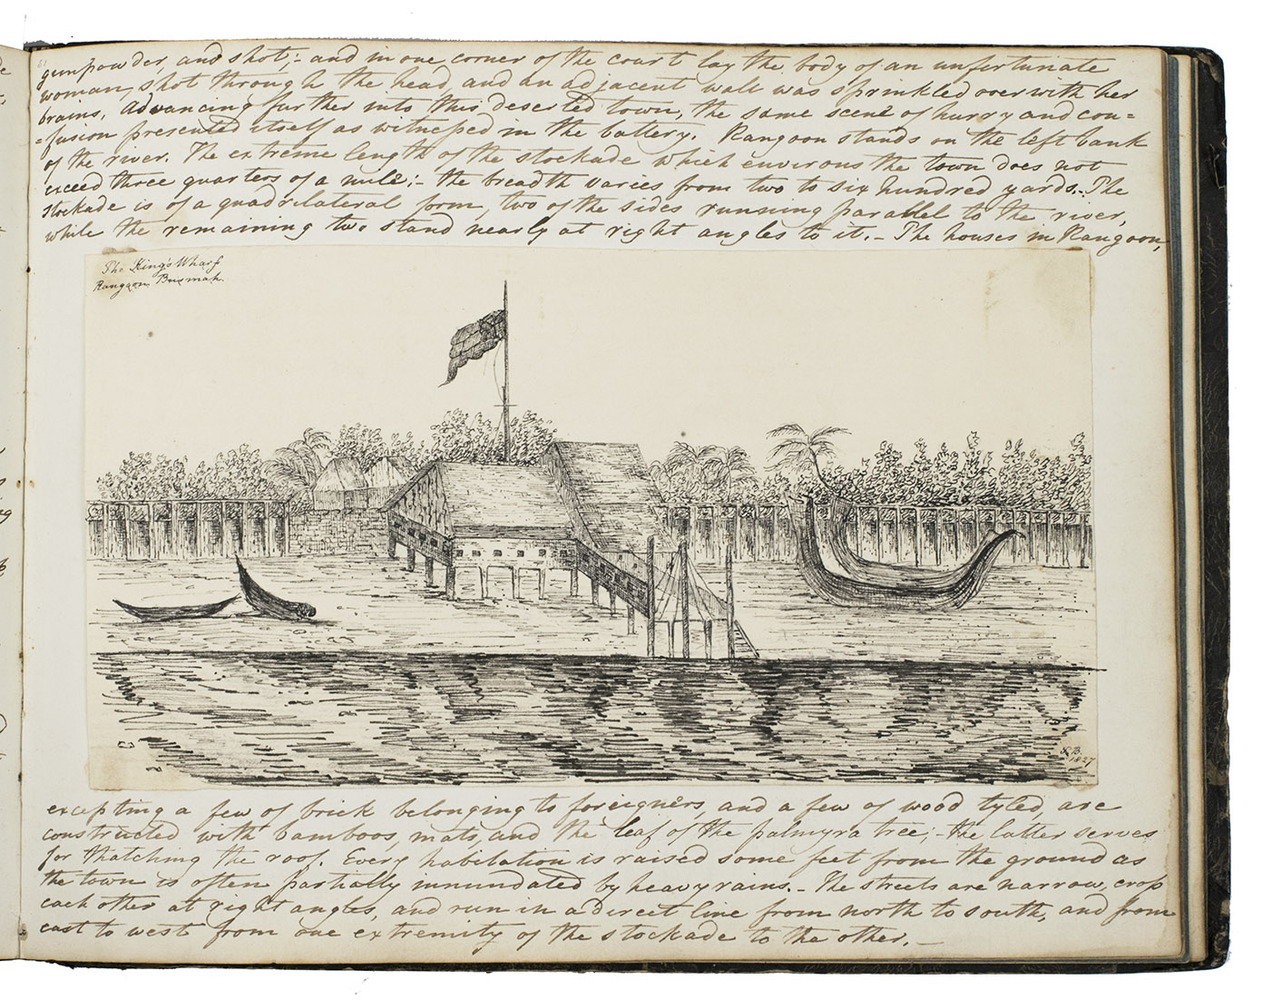 gunpowder, and shot;- and in one corner of the court lay the body of an unfortunate
woman, shot through the head, and an adjacent wall was sprinkled over with her
brains. Advancing further into this deserted town, the same scene of hurry and con=
=fusion presented itself as witnessed in the battery. Rangoon stands on the left bank
of the river. The extreme length of the stockade which environs the town does not
exceed three quarters of a mile;- the breadth varies from two to six hundred yards.- The
stockade is of a quadrilateral form, two of the sides running parallel to the river,
while the remaining two stand nearly at right angles to it.- The houses in Rangoon,
The King's Wharf
Rangoon Burmah.
B.
1827
excepting a few of brick belonging to foreigners, and a few of wood tyled, are
constructed with bamboos, mats, and the leaf of the palmyra tree;- the latter serves
for thatching the roof. Every habitation is raised some feet from the ground as
the town is often partially innundated by heavy rains.- The streets are narrow, cross
each other at right angles, and run in a direct line from north to south, and from
east to west from one extremity of the stockade to the other.-